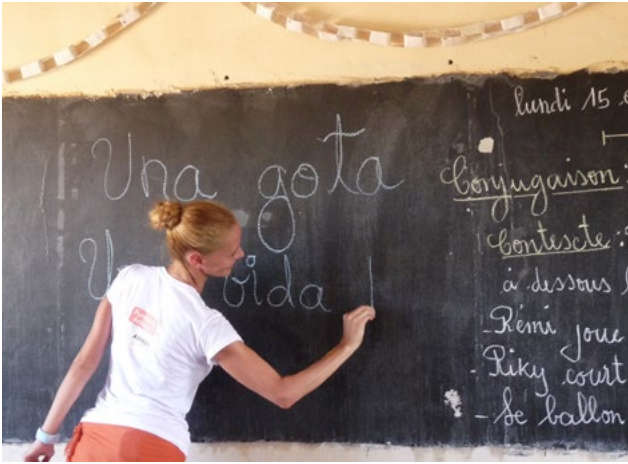 Una gota
vida
lundi 15
Conjugaison :
Contescte :
à dessous
- Rémi joue
- Riky court
- Le ballon